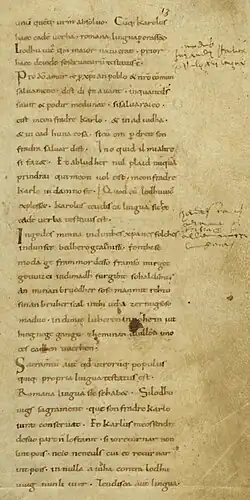 13
unu quēq; urm absoluo. Cūq; karolus
haec eadē uerba romana lingua perorasset.
Lodhuuic qm maior natu erat. prior
haec deinde se seruaturū testatus ē.
Pro dō amur & pxpian poblo & nrō comun
saluament. dist di in auant. inquantds
sauir & podir medunat. sisaluaraieo
cist meon fradre karlo. & in aiudha
& in cad huna cosa. sicū om p dreit son
fradra saluar dist. Ino quid il mialtre
si fazet. Et abludher nul plaid nūquā
prindrai qui meon uol cist. meon fradre
karle in damno sit. Quod cū lodhuuic
explesset. karolus teudisca lingua sic hec
eadē uerba testatus est.
Ingodes minna indinthes xpanes folches
indunser bedhero gealtnissi. fonthese
moda ge frammordesso framso mirgot
geuuizci indimadh furgibit sohaldihtes
an minan bruodher soso manmit rehtu
sinan bruher scal inthi utha zermigsoso
maduo. indimit luheren innohein iut
hing nege gango. zheminan uuillon imo
ces cadhen uuerhen.
Sacramtū aut qd utrorūq; populus
quiq; propria lingua testatus est.
Romana lingua sic sehabet. Silodhu
uigs sagrament. que son fradre karlo
iurat conseruat. Et karlus meossendra
desuo partn lostanit. si ioreturnar non
lint pois. neio neneuls cui eo returnar
int pois. in nulla aiudha contra lodhu
uuig nunli iuer. Teudisca aut lingua